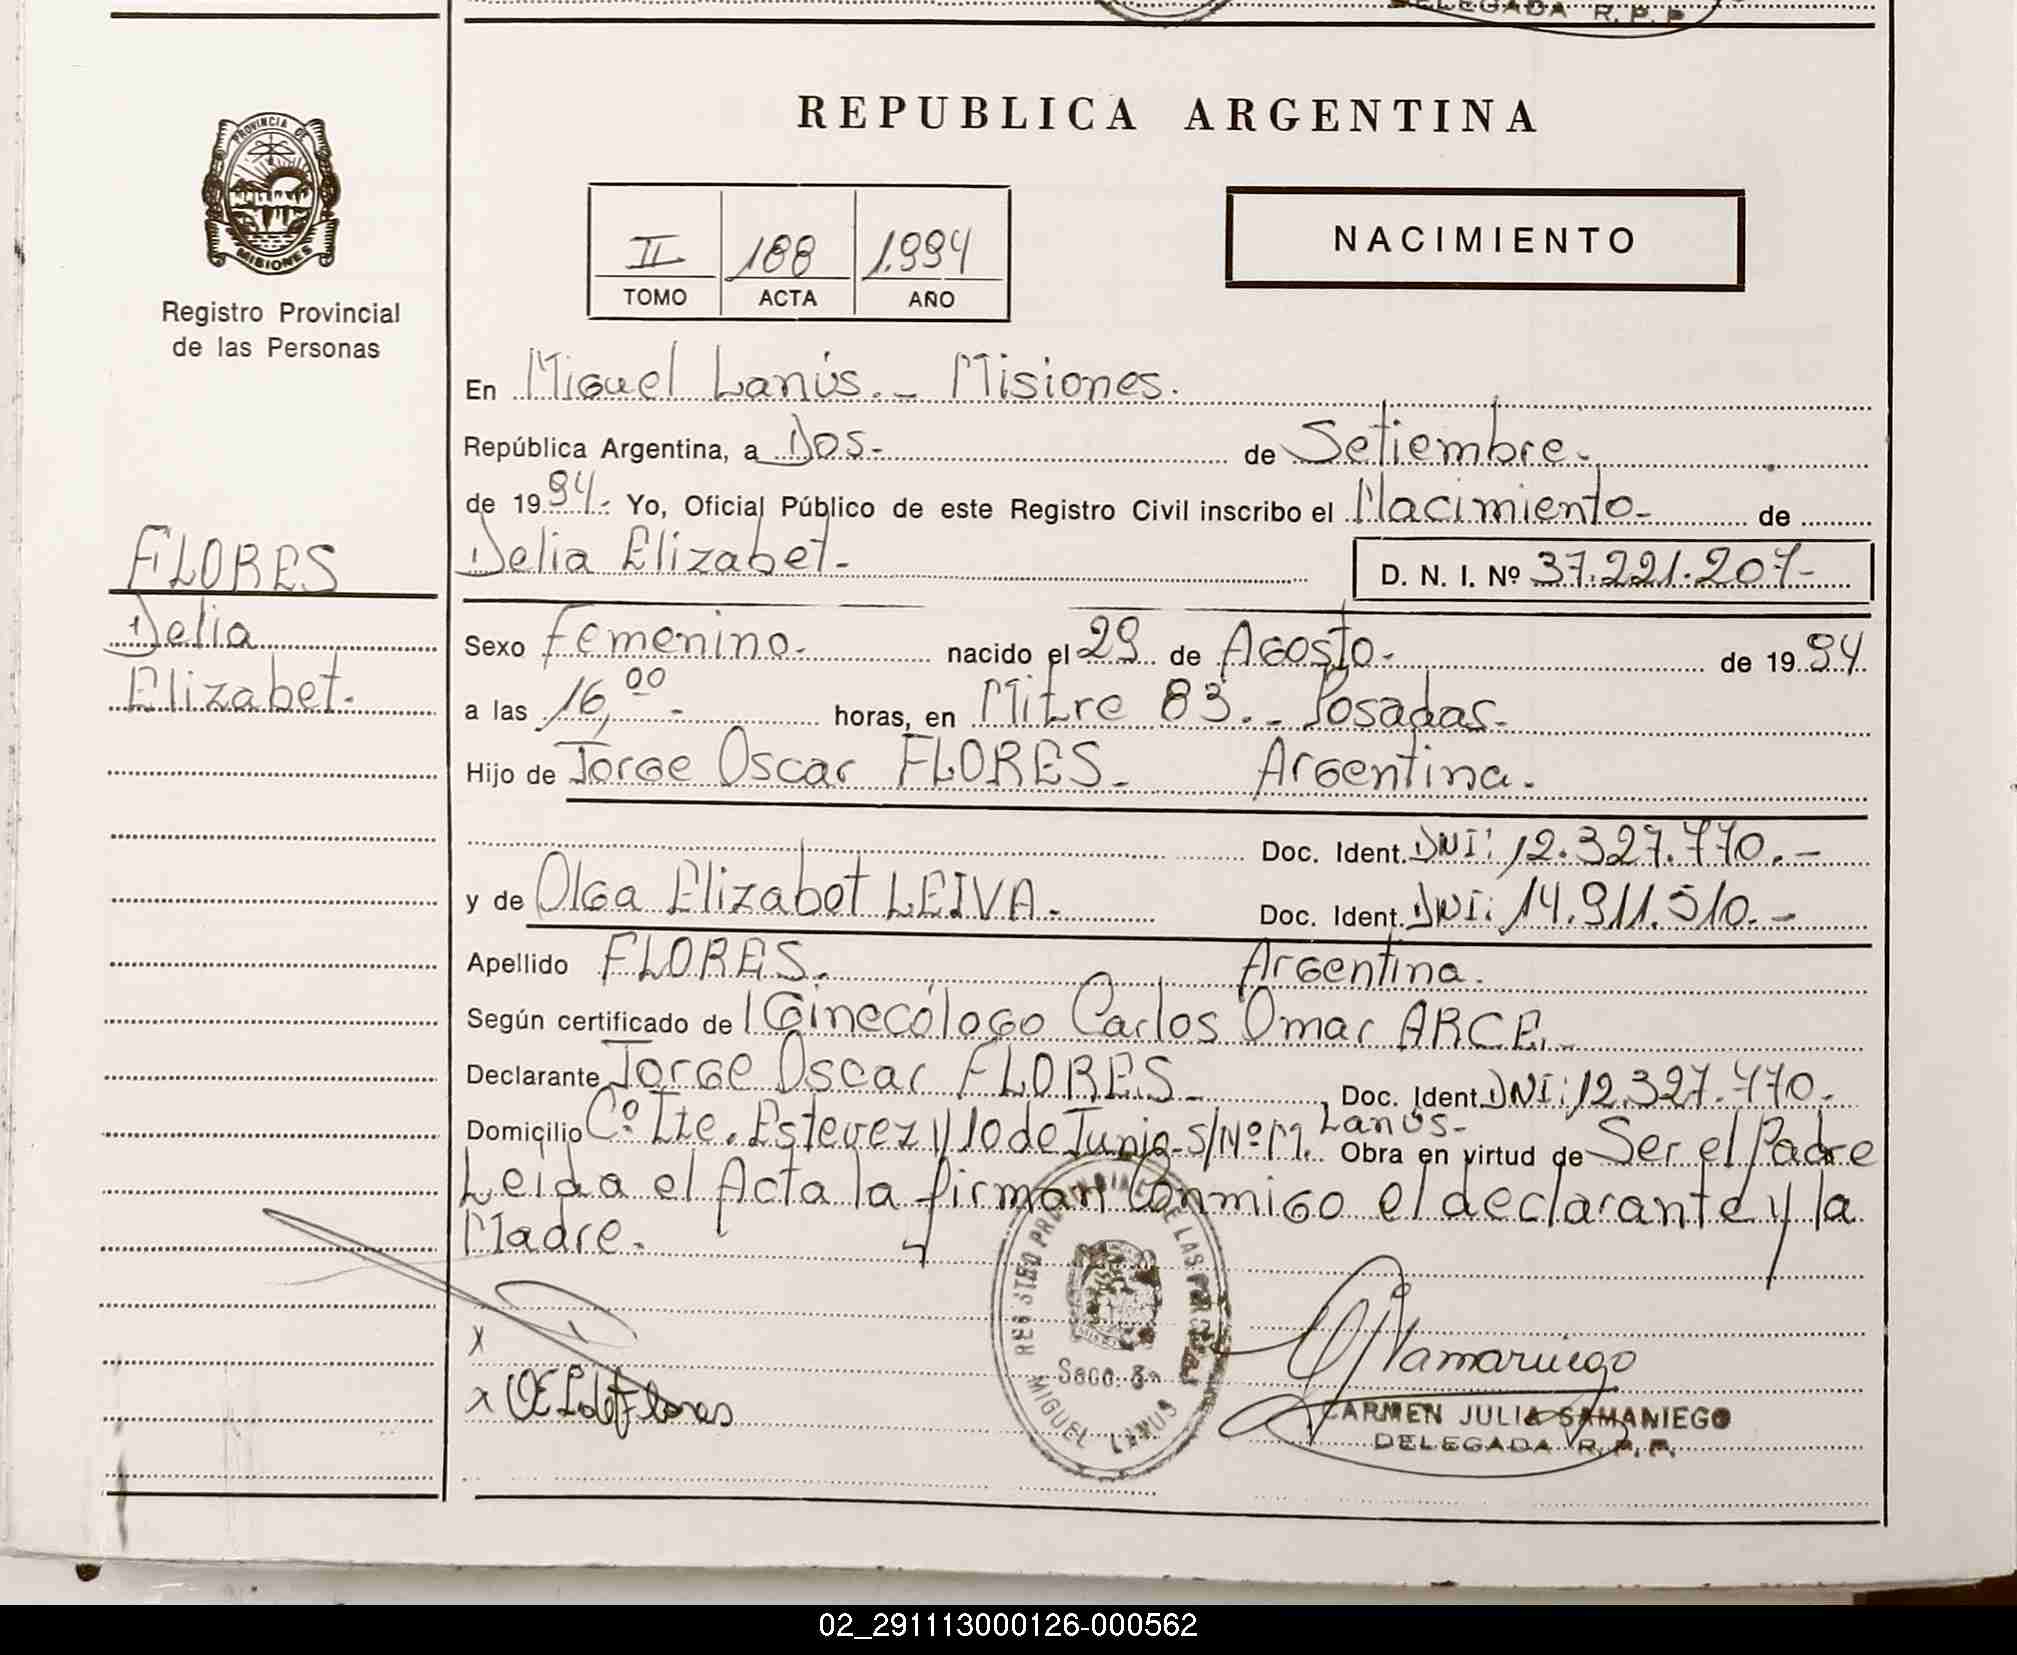 DELEGADA R. P. P.
PROVINCIA DE
MISIONES
Registro Provincial
de las Personas
REPUBLICA ARGENTINA
II 188 1.994
TOMO ACTA AÑO
NACIMIENTO
En Miguel Lanús.- Misiones.
República Argentina, a Dos.- de Setiembre.-
de 1994.- Yo, Oficial Público de este Registro Civil inscribo el Nacimiento- de
FLORES
Delia
Elizabet.-
Delia Elizabet.- D. N. I. Nº 37.221.207-
Sexo Femenino.- nacido el 29 de Agosto.- de 1994
a las 16,00 - horas, en Mitre 83.- Posadas.-
Hijo de Jorge Oscar FLORES.- Argentina.-
Doc. Ident. DNI: 12.327.770.-
y de Olga Elizabet LEIVA.- Doc. Ident. DNI: 14.911.510.-
Apellido FLORES.- Argentina.
Según certificado de l Ginecólogo Carlos Omar ARCE.-
Declarante Jorge Oscar FLORES- Doc. Ident. DNI: 12.327.770.-
Domicilio Cº Tte. Estevez y 10 de Junio-S/Nº M. Lanús.- Obra en virtud de Ser el Padre
Leida el Acta la firman Conmigo el declarante y la
Madre.-
x
x OELdeFlores
REGISTRO PROVINCIAL DE LAS PERSONAS
Secc. 3ª
MIGUEL LANUS
CARMEN JULIA SAMANIEGO
DELEGADA R. P. P.
02_291113000126-000562